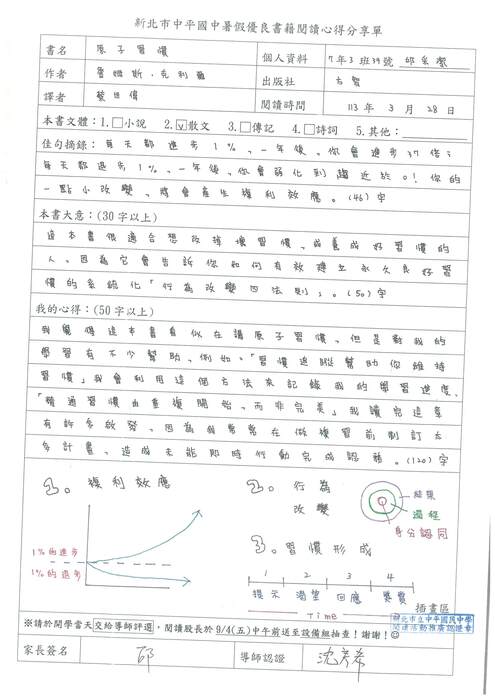 新北市中平國中暑假優良書籍閱讀心得分享單
書名 原子習慣 個人資料 7年3班39號 邱采潔
作者 詹姆斯.克利爾 出版社 方智
譯者 蔡世偉 閱讀時間 113年3月28日
本書文體:1.□小說 2.☑散文 3.□傳記 4.□詩詞 5.其他:
佳句摘錄:每天都進步1%、一年後、你會進步37倍;
每天都退步1%、一年後、你會弱化到趨近於0!你的
一點小改變、將會產生複利效應。(46)字
本書大意:(30字以上)
這本書很適合想改掉壞習慣、或養成好習慣的
人。因為它會告訴你如何有效建立永久良好習
慣的系統化「行為改變四法則」。(50)字
我的心得:(50字以上)
我覺得這本書看似在講原子習慣、但是對我的
學習有不少幫助、例如:「習慣追蹤幫助你維持
習慣」我會利用這個方法來記錄我的學習進度、
「精通習慣由重複開始、而非完美」我讀完這章
有許多啟發、因為我常常在做複習前制訂太
多計畫、造成未能即時行動完成認務。(120)字
1. 複利效應
1%的進步
1%的退步
2. 行為
改變
結果
過程
身分認同
3. 習慣形成
1 2 3 4
提示 渴望 回應 獎賞
Time
插畫區
新北市立中平國民中學
閱讀活動推廣認證章
※請於開學當天交給導師評選,閱讀股長於9/4(五)中午前送至設備組抽查!謝謝!☺
家長簽名 邱 導師認證